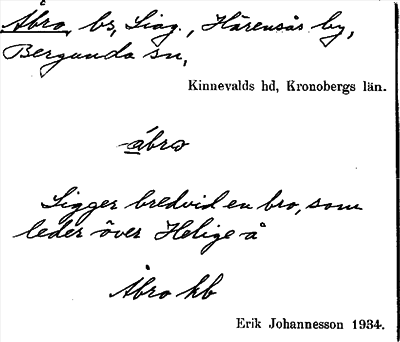 Åbro, bs, Liag., Härensås by,
Bergunda sn,
Kinnevalds hd, Kronobergs län.
åbro
Ligger bredvid en bro, som
leder över Helige å
Åbro kb
Erik Johannesson 1934.